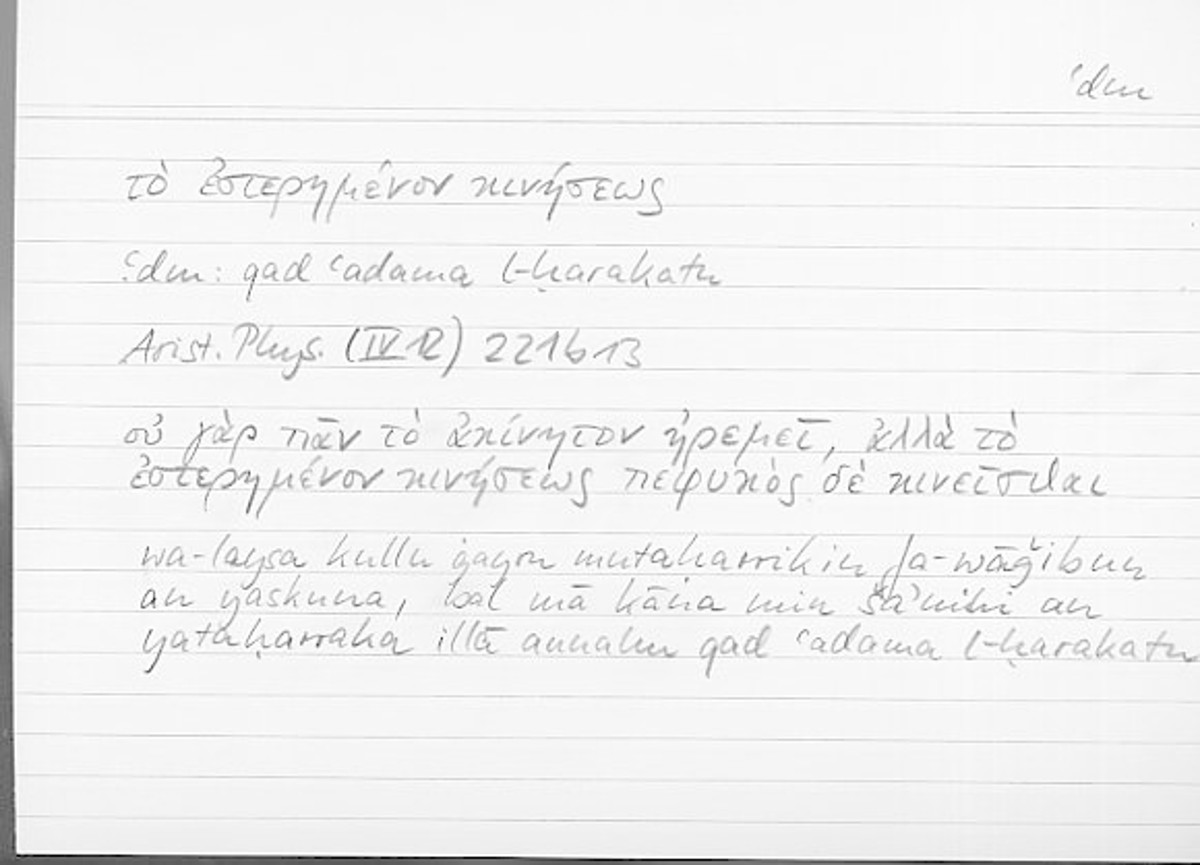 ʿdm
τὸ ἐστερημένον κινήσεως
ʿdm: qad ʿadama l-ḥarakatu
Arist. Phys. (IV 12) 221b13
οὐ γὰρ πᾶν τὸ ἀκίνητον ἠρεμεῖ, ἀλλὰ τὸ
ἐστερημένον κινήσεως πεφυκὸς δὲ κινεῖσθαι
wa-laysa kullu ġayri mutaharrikin fa-wāǧibun
an yaskuna, bal mā kāna min šaʾnihi an
yataḥarraka illā annahu qad ʿadama l-ḥarakatu